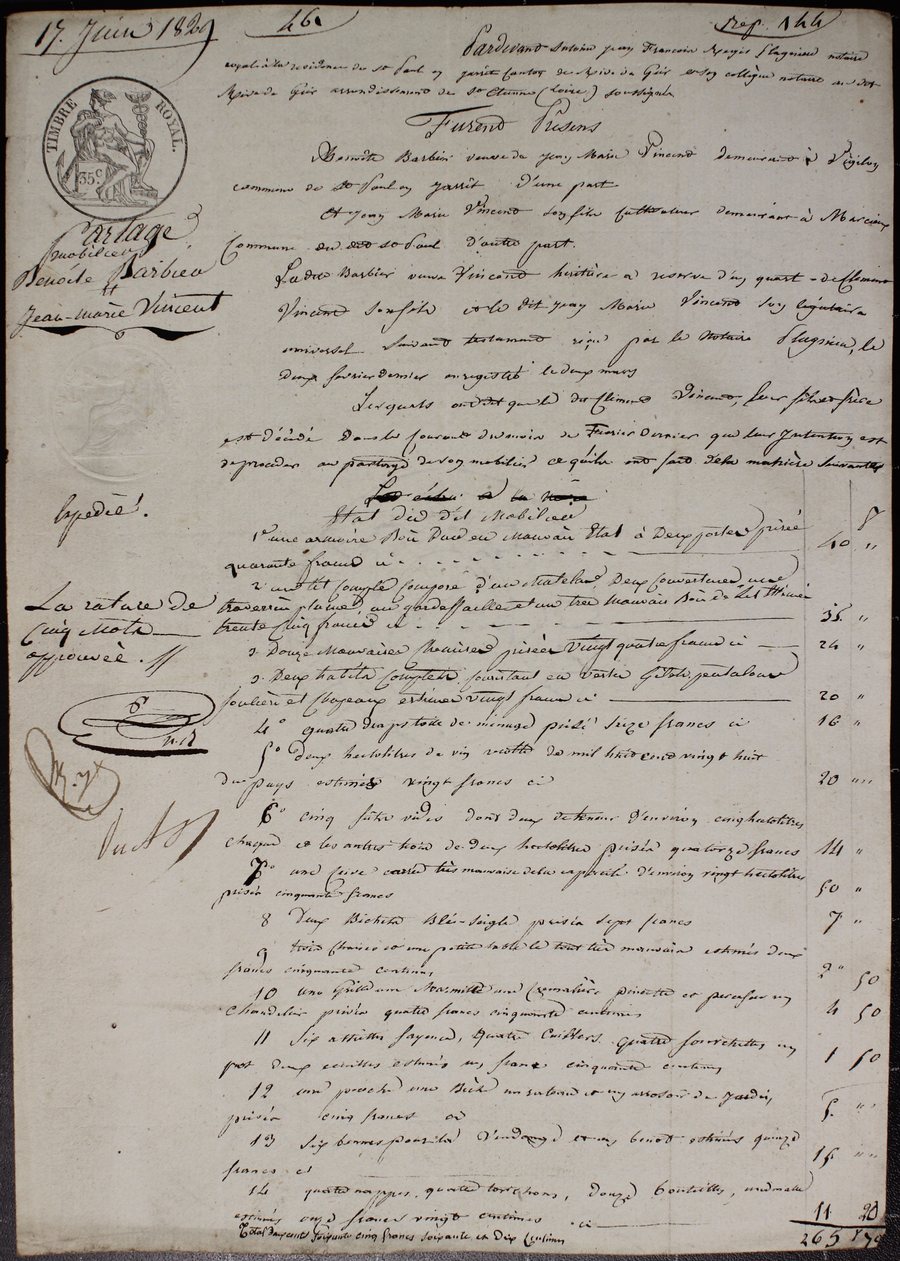 17. Juin 1829
46
rep. 144
Pardevant Antoine Jean François Plagnieu notaire
royal à la résidence de St Paul en jarret canton de Rive de Gier et son collègue notaire au dit
Rive de Gier arrondissement de St Etienne (Loire) soussignés
Furent Présens
Benoîte Barbier veuve de Jean Marie Vincent demeurant à
commune de St Paul en Jarrêt d'une part
Et Jean Marie Vincent son fils cultivateur demeurant à
Commune du dit St Paul d'autre part.
La dte Barbier veuve Vincent héritière à reserve d'un quart de Clément
Vincent son fils et le dit Jean Marie Vincent son légataire
universel Suivant testament reçu par le Notaire Plagnieu, le
deux février dernier enregistré le deux mars
Lesquels ont dit que le dit Clément Vincent, leur fils et frère
est décédé dans le courant du mois de Février dernier que leur Intention est
de procéder au partage de son mobilier ce qu'ils ont fait de la manière suivante
Etat du dit Mobilier
1° une armoire Bois Dur en Mauvais Etat à Deux portes prisée
quarante francs ci 40 "
2 un lit Complet Composé d'un Matelas, Deux Couvertures, une
traversin plume, un garde paille et un tres Mauvais Bois de Lit
trente Cinq francs ci 35 "
3. Douze Mauvaises Chemises prisées Vingt quatre francs ci 24 "
3. Deux habits Complets, consistant en Vestes Gilets pantalons
souliers et Chapeaux estimés vingt francs ci 20 "
4° quatre draps toile de ménage prisé seize francs ci 16 "
5° deux hectolitres de vin récolte de mil huit cent vingt huit
du pays estimés vingt francs ci 20 "
6° cinq fûts vides dont deux de tenue d'environ cinq hectolitres
chaque et les autres trois de deux hectolitres prisés quatorze francs 14 "
7° une cuve carrée très mauvaise de la capacité d'environ vingt hectolitres
prisée cinquante francs 50 "
8 deux Bichets Blé-Seigle prisés sept francs 7 "
9 trois chaises et une petite table le tout très mauvais estimés deux
francs cinquante centimes 2 " 50
10 une Grille une Marmite une Cremalière et un
Chandelier prisés quatre francs cinquante centimes 4 50
11 six assiettes fayence, quatre Cuillers quatre fourchettes un
pot deux ecuelles estimés un franc cinquante centimes 1 50
12 une pioche une Bêche un rateau et un arrosoir de Jardin,
prisés cinq francs ci 5. "
13 six bennes pour la Vendange et un benot estimés quinze
francs ci 15 "
14 quatre nappes, quatre torchons, douze bouteilles, une malle
estimés onze francs vingt centimes ci 11 20
Total deux cents soixante cinq francs soixante et dix Centimes 265 70
TIMBRE ROYAL.
35c
Partage
mobilier
Benoite Barbier
et
Jean-Marie Vincent
Expédié.
La rature de
Cinq Mots
approuvée.